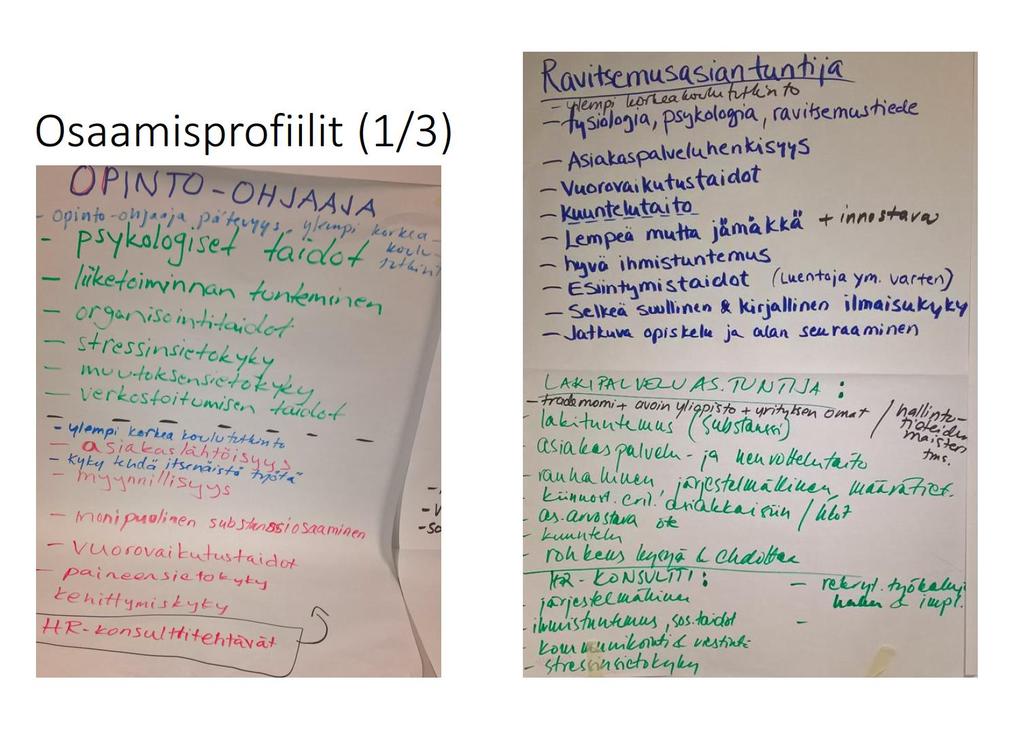 Osaamisprofiilit (1/3)
OPINTO-OHJAAJA
- Opinto-ohjaaja pätevyys, ylempi korkea-
koulu-
tutkinto
- psykologiset taidot
- liiketoiminnan tunteminen
- organisointitaidot
- stressinsietokyky
- muutoksensietokyky
- verkostoitumisen taidot
- ylempi korkeakoulututkinto
- asiakaslähtöisyys
- kyky tehdä itsenäistä työtä
- myynnillisyys
- monipuolinen substanssiosaaminen
- vuorovaikutustaidot
- paineensietokyky
kehittymiskyky
HR-konsulttitehtävät
Ravitsemusasiantuntija
- ylempi korkeakoulututkinto
- fysiologia, psykologia, ravitsemustiede
- Asiakaspalveluhenkisyys
- Vuorovaikutustaidot
- Kuuntelutaito
- Lempeä mutta jämäkkä + innostava
- hyvä ihmistuntemus
- Esiintymistaidot (luentoja ym. varten)
- Selkeä suullinen & kirjallinen ilmaisukyky
- Jatkuva opiskelu ja alan seuraaminen
LAKIPALVELUAS.TUNTIJA:
- tradenomi + avoin yliopisto + yrityksen omat / hallinto-
tieteiden
maisteri
tms.
- lakituntemus (substanssi)
asiakaspalvelu- ja neuvottelutaito
- rauhallinen, järjestelmällinen, määrätiet.
- kiinnost. eril. asiakkaisiin / hlöt
- as.arvostava ote
- kuuntelu
- rohkeus kysyä & ehdottaa
HR-KONSULTTI:
- järjestelmällinen
- ihmistuntemus, sos.taidot
- kommunikointi & viestintä
- stressinsietokyky
- rekryt. työkaluj.
&
impl.
-